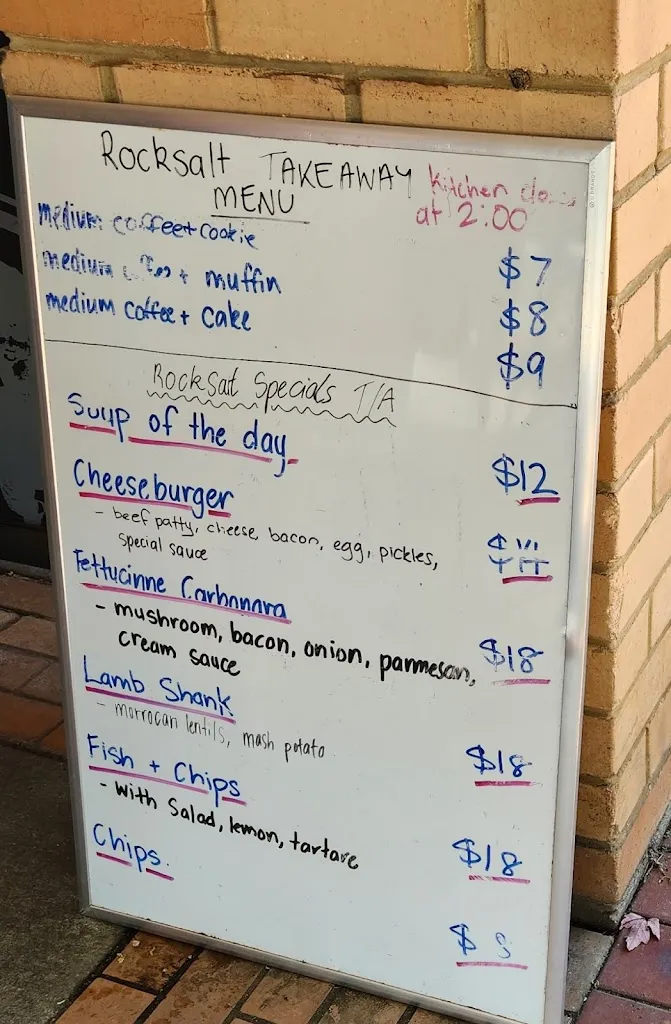 Rocksalt TAKEAWAY
MENU
Kitchen
at 2:00
medium coffee+cookie $7
medium + muffin $8
medium coffee + cake $9
Rocksalt Specials T/A
Soup of the day $12
Cheeseburger
- beef patty, cheese, bacon, egg, pickles,
special sauce
Fettucinne Carbonara $18
- mushroom, bacon, onion, parmesan,
cream sauce
Lamb Shank $18
- morrocan lentils, mash potato
Fish + Chips $18
- with Salad, lemon, tartare
Chips. $